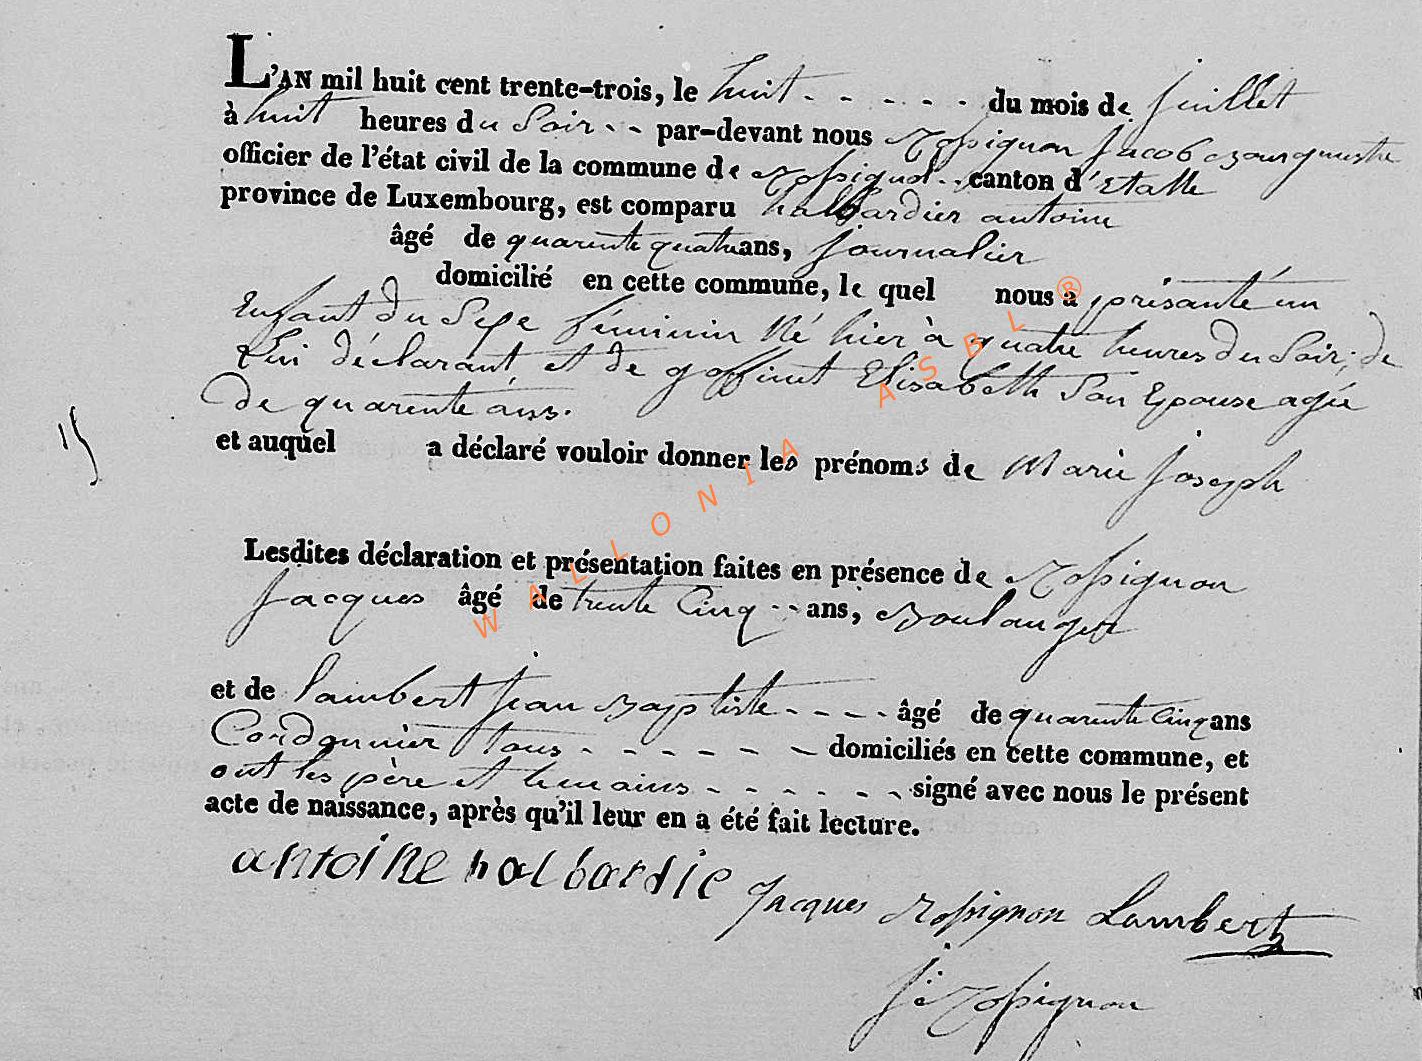 L'AN mil huit cent trente-trois, le huit - - - - - du mois de juillet
à huit heures du Soir - - par-devant nous Rossignon Jacob Bourgmestre
officier de l'état civil de la commune de Rossignol - canton d'Etalle
province de Luxembourg, est comparu halbardier antoine
âgé de quarente quatre ans, journalier
domicilié en cette commune, le quel nous a présanté un
Enfant du Sexe féminin Né hier à quatre heures du Soir, de
Lui déclarant et de goffinet Elisabeth Son Epouse agée
De quarente ans.
et auquel a déclaré vouloir donner les prénoms de Marie Joseph
15
Lesdites déclaration et présentation faites en présence de Rossignon
Jacques âgé de trente Cinq - - ans, Boulanger
et de Lambert Jean Baptiste - - - - âgé de quarente Cinq ans
Cordonnier tous - - - - - - domiciliés en cette commune, et
ont les père et temains - - - - - - signé avec nous le présent
acte de naissance, après qu'il leur en a été fait lecture.
antoine halbardie Jacques Rossignon Lambert
j Rossignon
WALLONIA ASBL ®